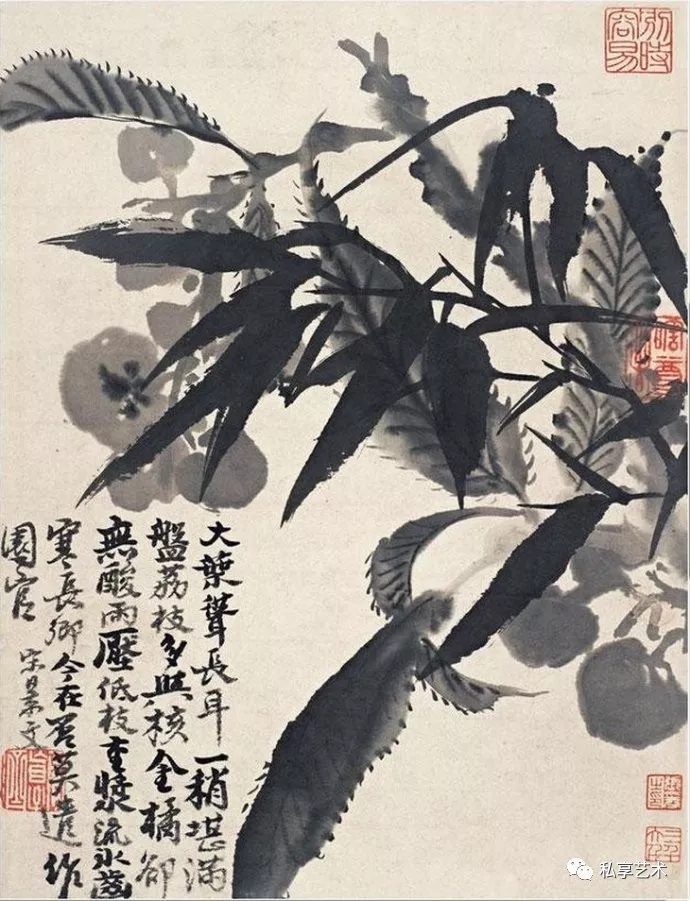 別時容易
大葉聳長耳一稍堪滿
盤荔枝分與核金橘卻
無酸雨壓低枝重漿流氷齒
寒長卿今在否莫遣作
園官
宋景文
私享艺术